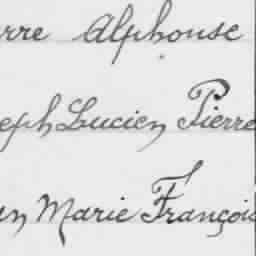 rre Alphonse
eph Lucien Pierre
n Marie François